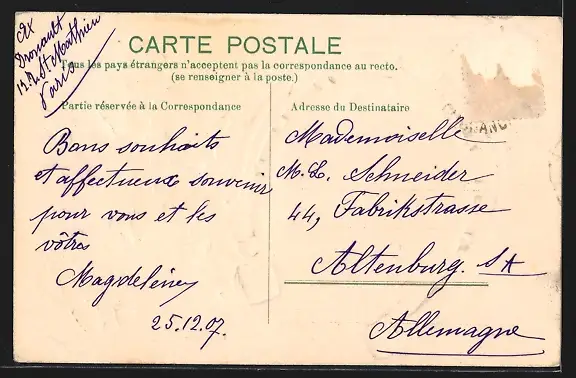 Ex
Dronault
12. R. St Mathieu
Paris
CARTE POSTALE
Tous les pays étrangers n'acceptent pas la correspondance au recto.
(se renseigner à la poste.)
Partie réservée à la Correspondance
Bons souhaits
et affectueux souvenir
pour vous et les
vôtres
Magdeleine
25.12.07.
Adresse du Destinataire
Mademoiselle
M. L. Schneider
44, Fabrikstrasse
Altenburg. S/A
Allemagne